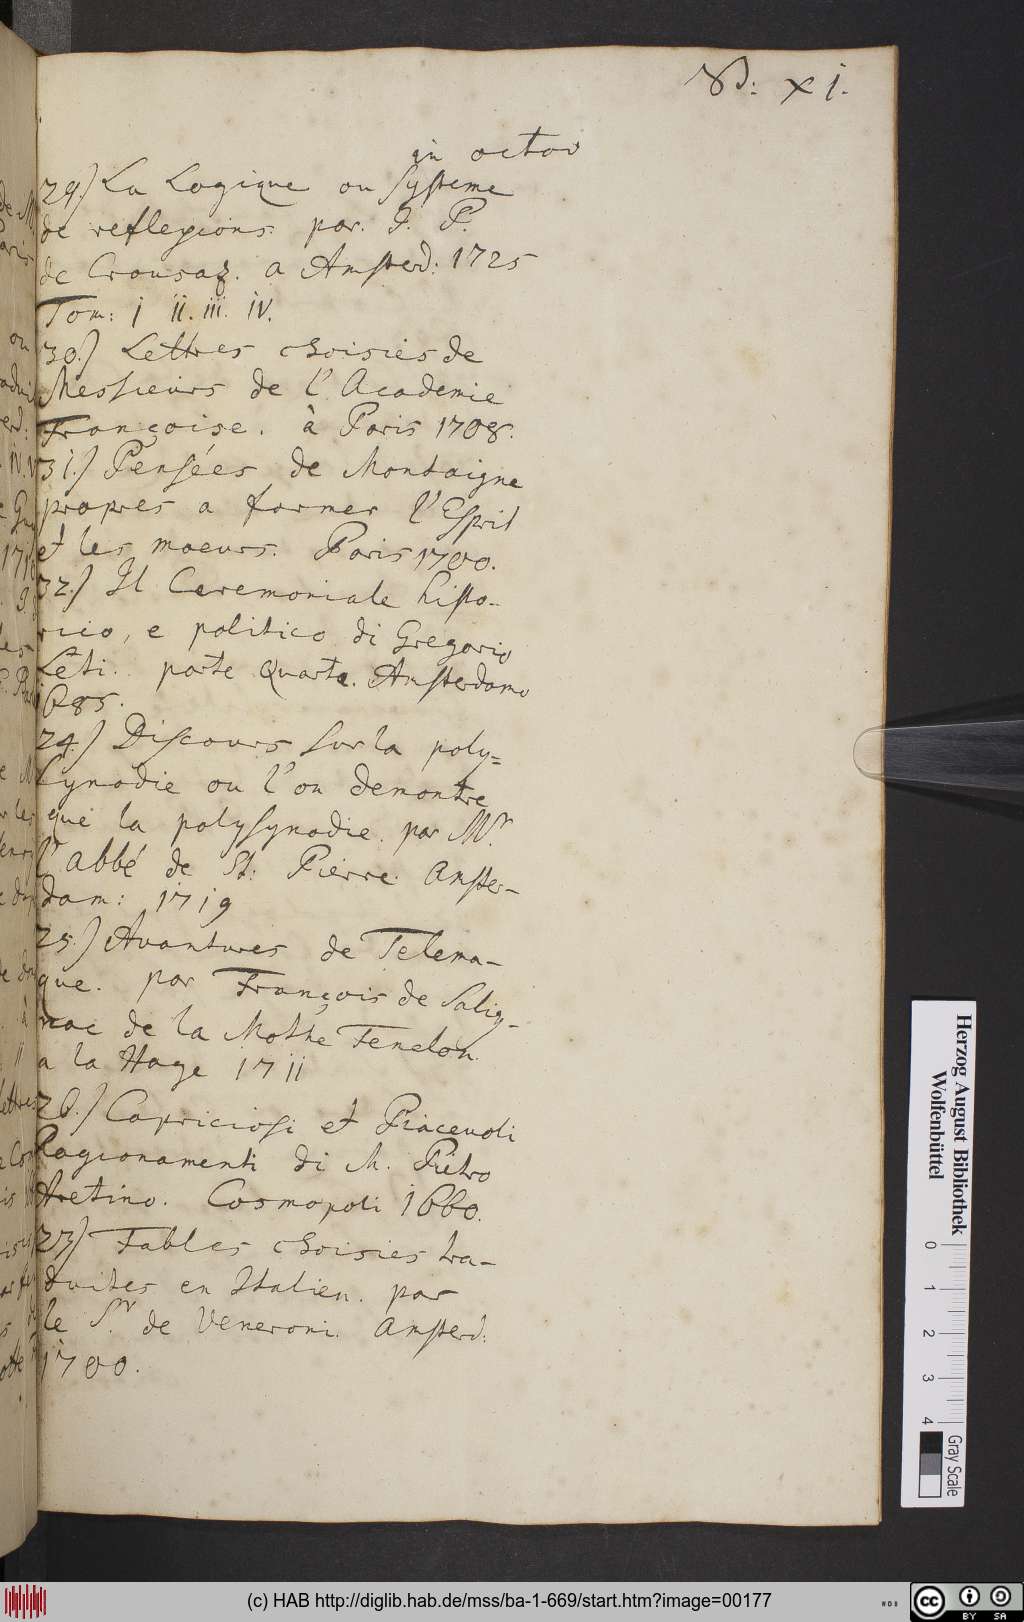 XI.
in octav
29.) La Logique ou systeme
de reflexions. par. J. P.
de Crousaz. a Amsterd: 1725
Tom: I II. III. IV.
30.) Lettres choisies de
Messieurs de l'Academie
Françoise. à Paris 1708.
31.) Pensées de Montaigne
propres a former l'Esprit
et les moeurs. Paris 1700.
32.) Il Ceremoniale histo-
rico, e politico di Gregorio
Leti. parte quarta. Amsterdamo
1685.
24.) Discours sur la poly=
synodie ou l'on demontre
que la polysynodie. par Mr.
l'abbé de St: Pierre. Amster-
dam: 1719
25.) Avantures de Telema-
que. par François de Salig-
nac de la Mothe Fenelon.
a la Haye 1711
26.) Capriciosi et Piacevoli
Ragionamenti di M. Pietro
Aretino. Cosmopoli 1660.
27) Fables choisies tra-
duites en Italien. par
le Sr. de Veneroni. Amsterd:
1700.
Herzog August Bibliothek
Wolfenbüttel
0 1 2 3 4
Gray Scale
(c) HAB http://diglib.hab.de/mss/ba-1-669/start.htm?image=00177
cc BY SA